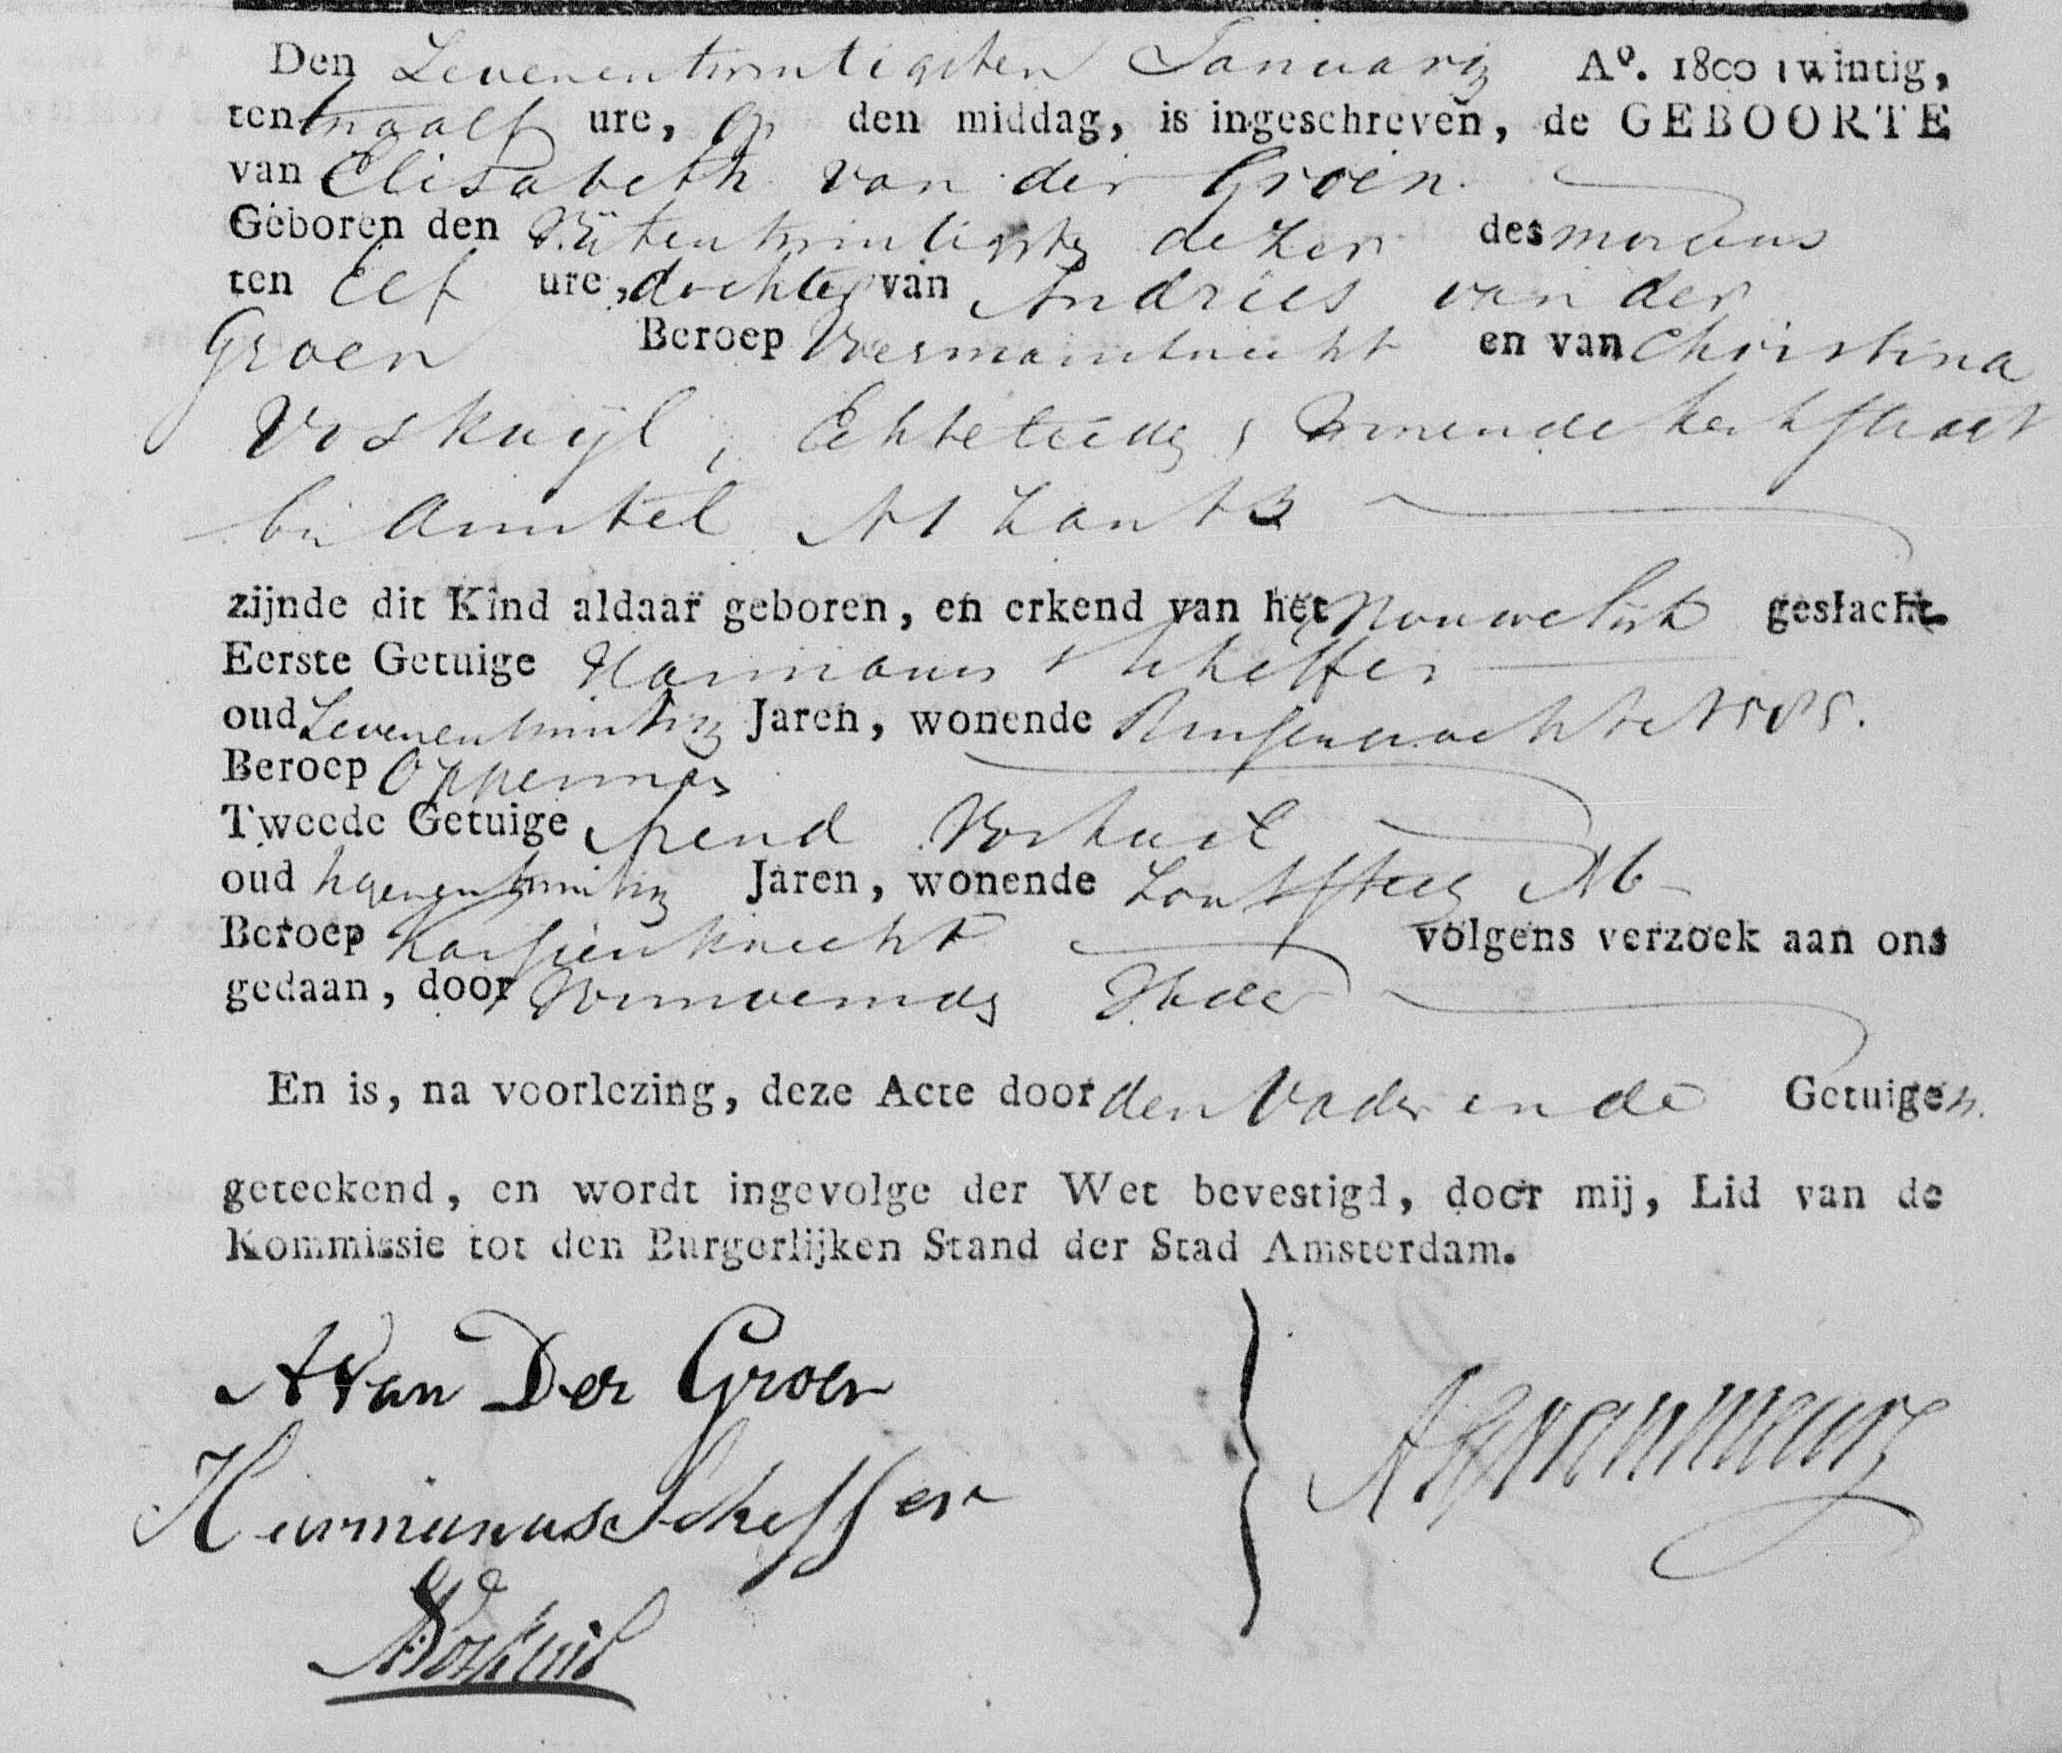 Den Zevenentwintigsten Januarij Aº. 1800 twintig,
ten twaalf ure, op den middag, is ingeschreven, de GEBOORTE
van Elisabeth van der Groen.
Geboren den Vijfentwintigste dezer des morgens
ten Elf ure, dochter van Andries van der
Groen Beroep en van Christina
Voskuijl, Echtelieden, wonende kerkstraat
bij Amstel
zijnde dit Kind aldaar geboren, en erkend van het Vrouwelijk geslacht.
Eerste Getuige Harmanus Scheffer
oud Zevenentwintig Jaren, wonende
Beroep Opperman
Tweede Getuige Arend Voskuil
oud Negenentwintig Jaren, wonende Zoutsteeg N 6
Beroep volgens verzoek aan ons
gedaan, door Voornoemde Vader
En is, na voorlezing, deze Acte door den Vader en de Getuigen.
geteekend, en wordt ingevolge der Wet bevestigd, door mij, Lid van de
Kommissie tot den Burgerlijken Stand der Stad Amsterdam.
A Van Der Groen
Harmanus Scheffer
A Voskuil